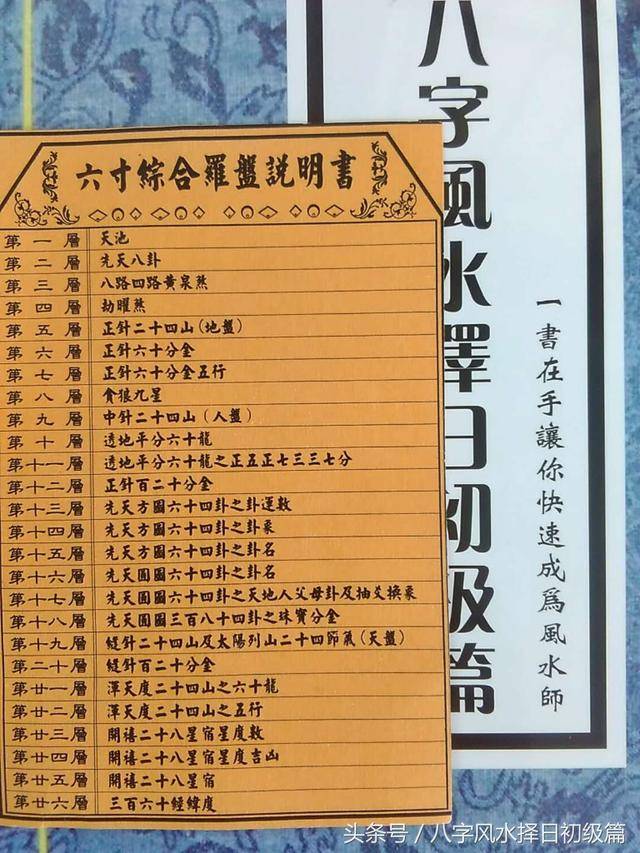 八字風水擇日初級篇
一書在手讓你快速成為風水師
六寸綜合羅盤説明書
第一層 天池
第二層 先天八卦
第三層 八路四路黃泉煞
第四層 劫曜煞
第五層 正針二十四山(地盤)
第六層 正針六十分金
第七層 正針六十分金五行
第八層 貪狼九星
第九層 中針二十四山(人盤)
第十層 透地平分六十龍
第十一層 透地平分六十龍之正五正七三三七分
第十二層 正針百二十分金
第十三層 先天方圖六十四卦之卦運數
第十四層 先天方圖六十四卦之卦象
第十五層 先天方圖六十四卦之卦名
第十六層 先天圓圖六十四卦之卦名
第十七層 先天圓圖六十四卦之天地人父母卦及抽爻換象
第十八層 先天圓圖三百八十四卦之珠寶分金
第十九層 縫針二十四山及太陽列山二十四節氣(天盤)
第二十層 縫針百二十分金
第廿一層 渾天度二十四山之六十龍
第廿二層 渾天度二十四山之五行
第廿三層 開禧二十八星宿星度數
第廿四層 開禧二十八星宿星度吉凶
第廿五層 開禧二十八星宿
第廿六層 三百六十經緯度
头条号／八字风水择日初级篇